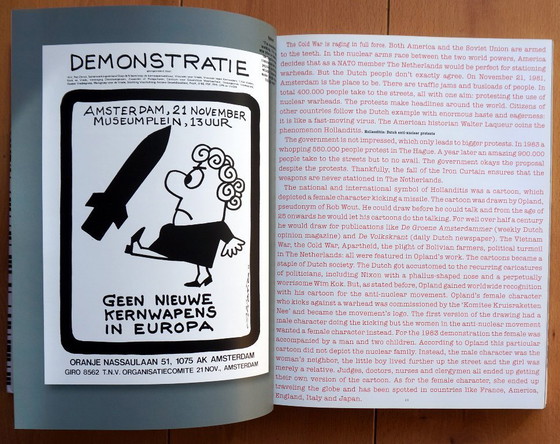 DEMONSTRATIE
AMSTERDAM, 21 NOVEMBER
MUSEUMPLEIN, 13 UUR
GEEN NIEUWE
KERNWAPENS
IN EUROPA
ORANJE NASSAULAAN 51, 1075 AK AMSTERDAM
GIRO 8562 T.N.V. ORGANISATIECOMITE 21 NOV., AMSTERDAM
The Cold War is raging in full force. Both America and the Soviet Union are armed
to the teeth. In the nuclear arms race between the two world powers, America
decides that as a NATO member The Netherlands would be perfect for stationing
warheads. But the Dutch people don't exactly agree. On November 21, 1981,
Amsterdam is the place to be. There are traffic jams and busloads of people. In
total 400.000 people take to the streets, all with one aim: protesting the use of
nuclear warheads. The protests make headlines around the world. Citizens of
other countries follow the Dutch example with enormous haste and eagerness:
it is like a fast-moving virus. The American historian Walter Laqueur coins the
phenomenon Hollanditis. Hollanditis: Dutch anti-nuclear protests
The government is not impressed, which only leads to bigger protests. In 1983 a
whopping 550.000 people protest in The Hague. A year later an amazing 900.000
people take to the streets but to no avail. The government okays the proposal
despite the protests. Thankfully, the fall of the Iron Curtain ensures that the
weapons are never stationed in The Netherlands.
The national and international symbol of Hollanditis was a cartoon, which
depicted a female character kicking a missile. The cartoon was drawn by Opland,
pseudonym of Rob Wout. He could draw before he could talk and from the age of
25 onwards he would let his cartoons do the talking. For well over half a century
he would draw for publications like De Groene Amsterdammer (weekly Dutch
opinion magazine) and De Volkskrant (daily Dutch newspaper). The Vietnam
War, the Cold War, Apartheid, the plight of Bolivian farmers, political turmoil
in The Netherlands: all were featured in Opland's work. The cartoons became a
staple of Dutch society. The Dutch got accustomed to the recurring caricatures
of politicians, including Nixon with a phallus-shaped nose and a perpetually
worrisome Wim Kok. But, as stated before, Opland gained worldwide recognition
with his cartoon for the anti-nuclear movement. Opland's female character
who kicks against a warhead was commissioned by the 'Komitee Kruisraketten
Nee' and became the movement's logo. The first version of the drawing had a
male character doing the kicking but the women in the anti-nuclear movement
wanted a female character instead. For the 1983 demonstration the female was
accompanied by a man and two children. According to Opland this particular
cartoon did not depict the nuclear family. Instead, the male character was the
woman's neighbor, the little boy lived further up the street and the girl was
merely a relative. Judges, doctors, nurses and clergymen all ended up getting
their own version of the cartoon. As for the female character, she ended up
traveling the globe and has been spotted in countries like France, America,
England, Italy and Japan.